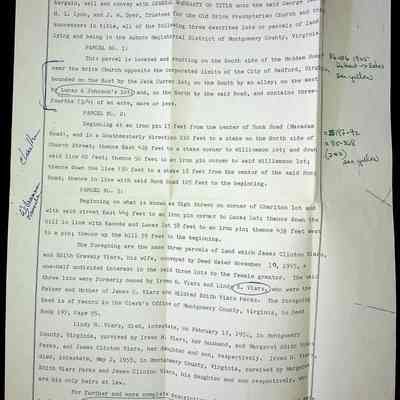 bargain, sell and convey with GENERAL WARRANTY OF TITLE unto the said George
H. L. Lyon, and J. W. Dyer, Trustees for the Old Brick Presbyterian Church and their
successors in title, all of the following three described lots or parcels of land
lying and being in the Auburn Magisterial District of Montgomery County, Virginia:
PARCEL NO. 1:
This parcel is located and abutting on the South side of the Macadam Road
near the Brick Church opposite the corporate limits of the City of Radford, Virginia,
bounded on the East by the Jack Carter lot; on the South by an alley; on the West
by Lucas & Johnson's lot; and, on the North by the said Road, and contains three-
fourths (3/4) of an acre, more or less.
PARCEL NO. 2:
Beginning at an iron pin 13 feet from the center of Rock Road (Macadam
Road), and in a Southeasterly direction 210 feet to a stake on the South side of
Church Street; thence East 428 feet to a stake corner to Williamson lot; and down
said line 60 feet; thence 50 feet to an iron pin corner to said Williamson lot;
thence down the line 130 feet to a stake 18 feet from the center of the said Rock
Road; thence in line with said Rock Road 105 feet to the beginning.
PARCEL NO. 3:
Beginning on what is known as High Street on corner of Charlton lot and
with said street 44½ feet to an iron pin corner to Lucas lot; thence down the
hill in line with Kanode and Lucas lot 58 feet to an iron pin; thence 43½ feet west
to a pin; thence up the hill 58 feet to the beginning.
The foregoing are the same three parcels of land which James Clinton Viars,
and Edith Gravely Viars, his wife, conveyed by Deed dated November 10, 1955, a
one-half undivided interest in the said three lots to the female grantor. The said
three lots were formerly owned by Irven H. Viars and Lindy H. Viars, who were the
Father and Mother of James C. Viars and Mildred Edith Viars Parks. The foregoing
Deed is of record in the Clerk's Office of Montgomery County, Virginia, in Deed
Book 197, Page 95.
Lindy H. Viars, died, intestate, on February 13, 1954, in Montgomery
County, Virginia, survived by Irven H. Viars, her husband, and Margaret Edith Viars
Parks, and James Clinton Viars, her daughter and son, respectively. Irven H. Viars,
died, intestate, May 2, 1955, in Montgomery County, Virginia, survived by Margaret
Edith Viars Parks and James Clinton Viars, his daughter and son respectively, who
are his only heirs at law.
For further and more complete description
see yellow
see yellow